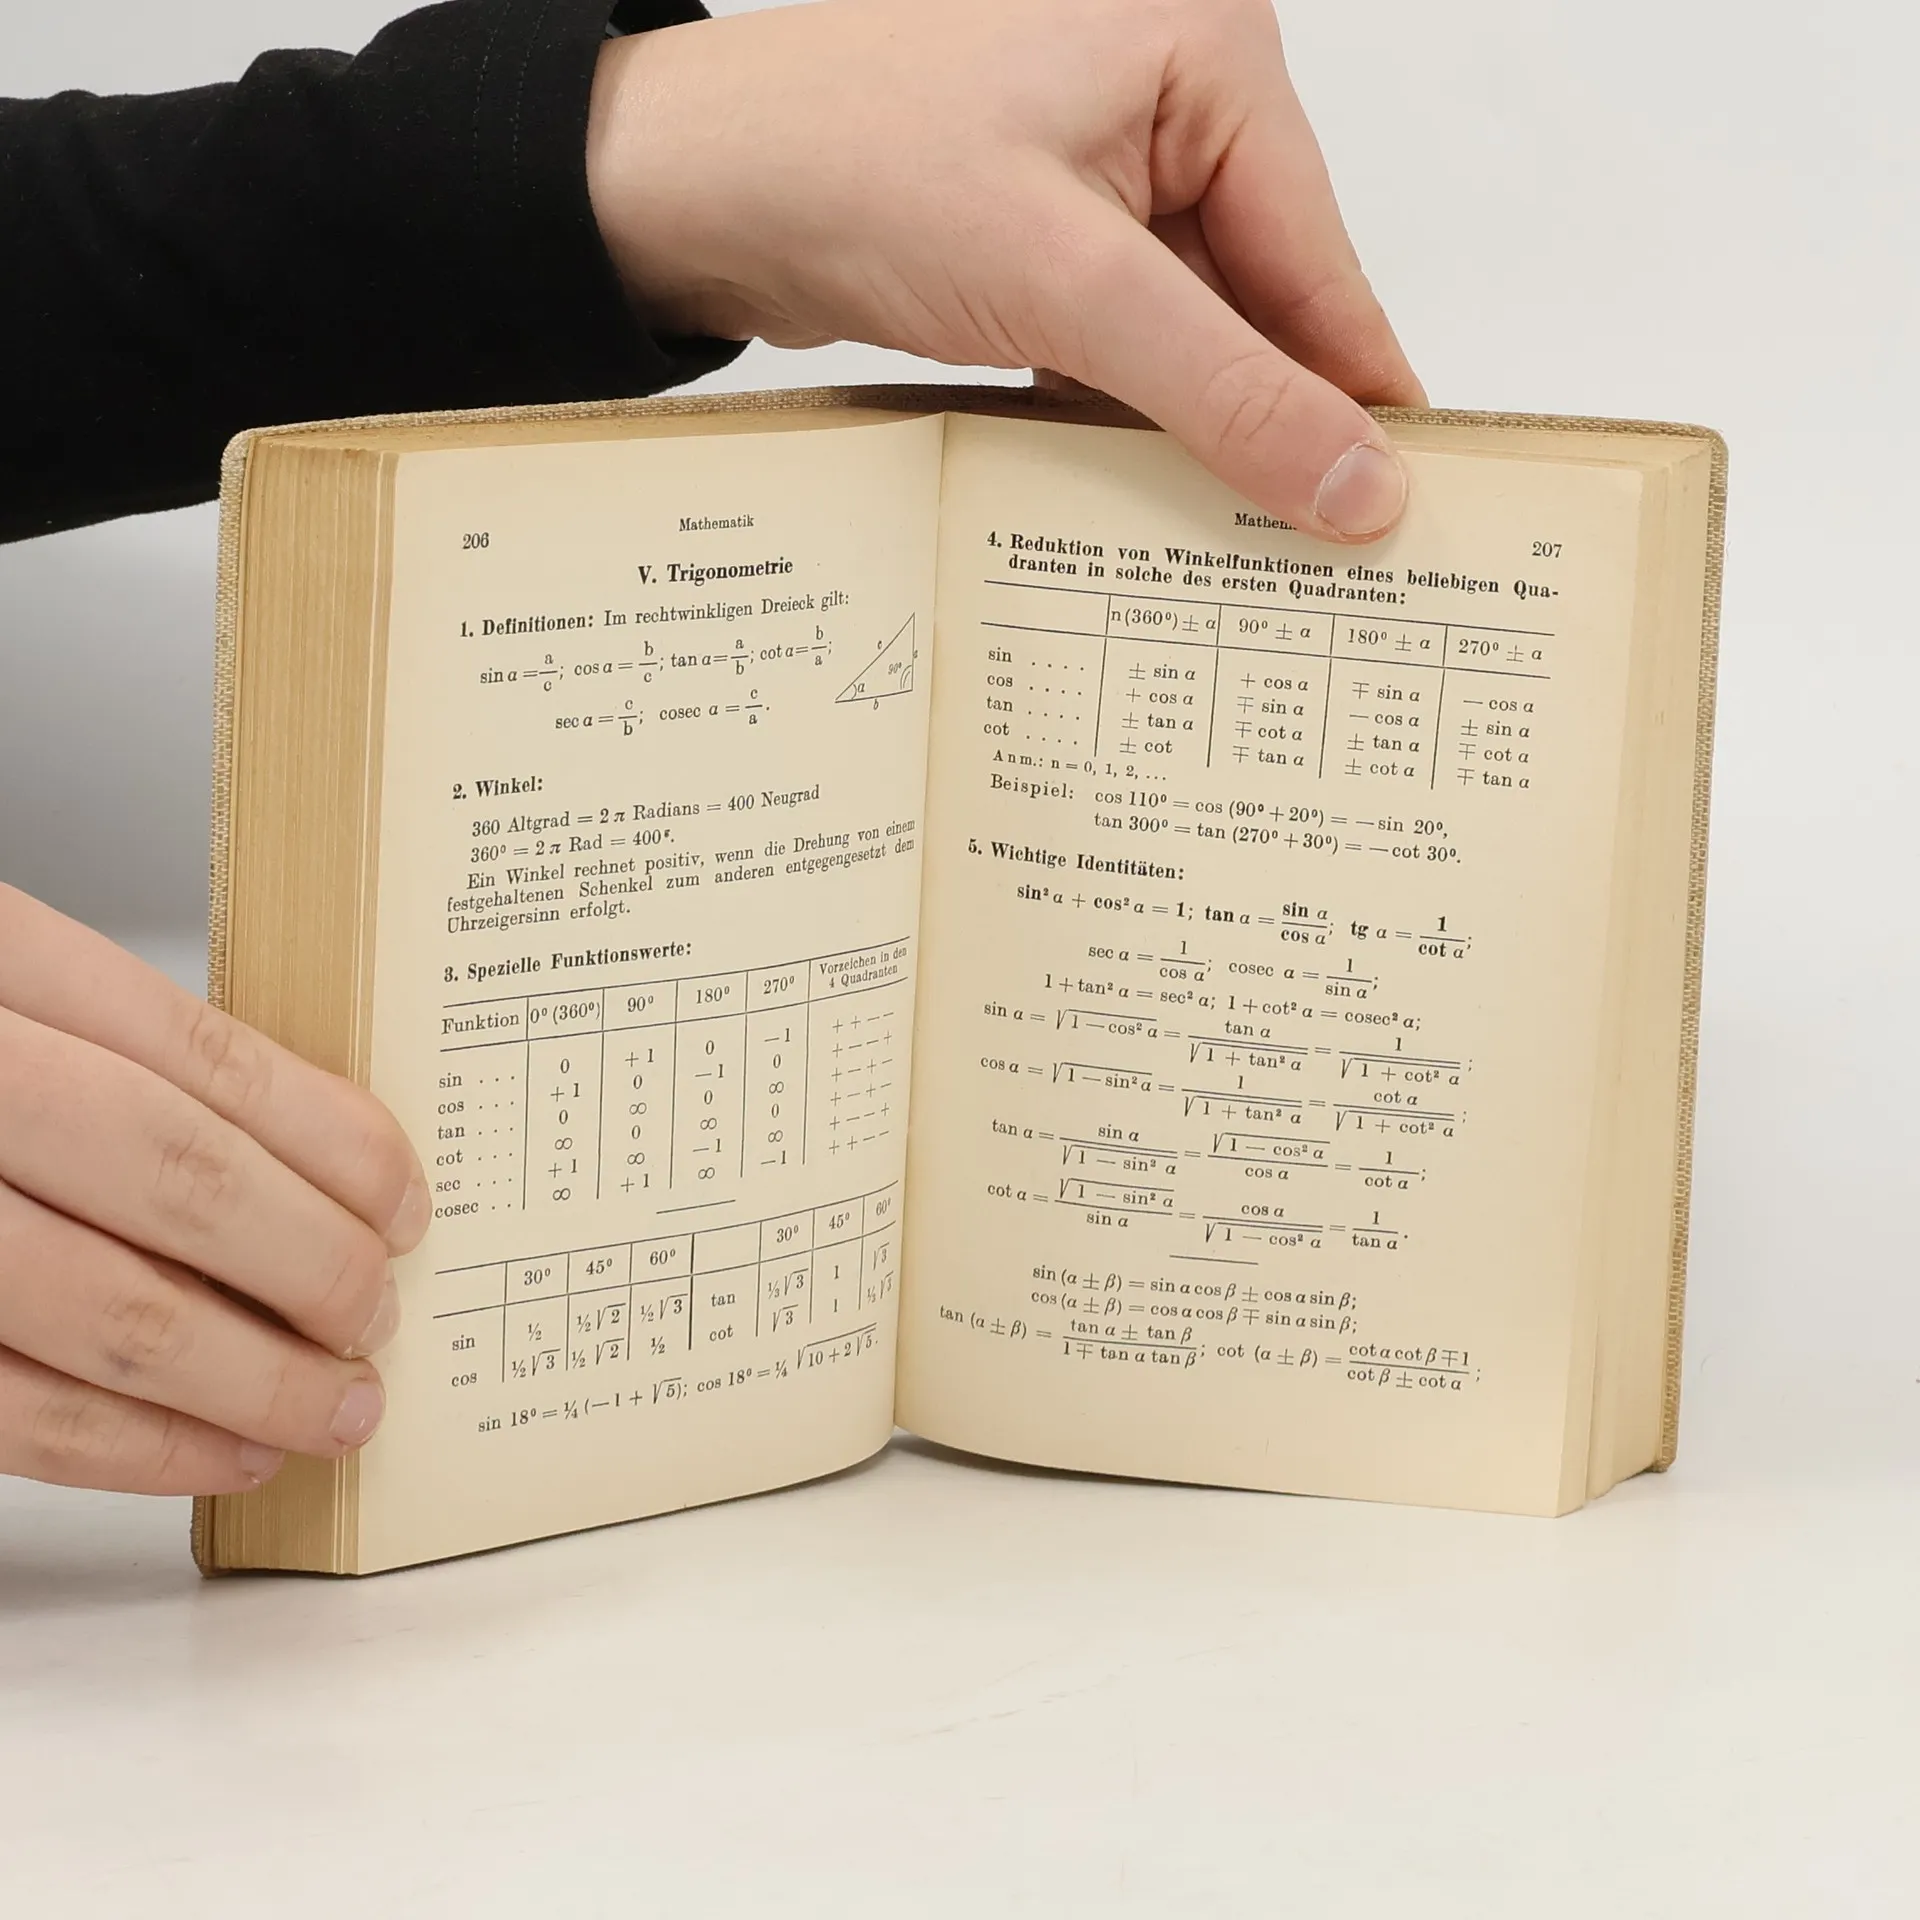 206
Mathematik
V. Trigonometrie
1. Definitionen: Im rechtwinkligen Dreieck gilt:
sin α = a/c; cos α = b/c; tan α = a/b; cot α = b/a;
sec α = c/b; cosec α = c/a.
c
90°
α
b
2. Winkel:
360 Altgrad = 2 π Radians = 400 Neugrad
360° = 2 π Rad = 400ᵍ.
Ein Winkel rechnet positiv, wenn die Drehung von einem
festgehaltenen Schenkel zum anderen entgegengesetzt dem
Uhrzeigersinn erfolgt.
3. Spezielle Funktionswerte:
Funktion 0° (360°) 90° 180° 270° Vorzeichen in den
4 Quadranten
sin . . . 0 + 1 0 — 1 + + — —
cos . . . + 1 0 — 1 0 + — — +
tan . . . 0 ∞ 0 ∞ + — + —
cot . . . ∞ 0 ∞ 0 + — + —
sec . . . + 1 ∞ — 1 ∞ + — — +
cosec . . ∞ + 1 ∞ — 1 + + — —
30° 45° 60° 30° 45° 60°
sin ½ ½ √2 ½ √3 tan ⅓ √3 1 √3
cos ½ √3 ½ √2 ½ cot √3 1 ⅓ √3
sin 18° = ¼ (— 1 + √5); cos 18° = ¼ √(10 + 2 √5).
207
4. Reduktion von Winkelfunktionen eines beliebigen Qua-
dranten in solche des ersten Quadranten:
n (360°) ± α 90° ± α 180° ± α 270° ± α
sin . . . . ± sin α + cos α ∓ sin α — cos α
cos . . . . + cos α ∓ sin α — cos α ± sin α
tan . . . . ± tan α ∓ cot α ± tan α ∓ cot α
cot . . . . ± cot ∓ tan α ± cot α ∓ tan α
Anm.: n = 0, 1, 2, ...
Beispiel: cos 110° = cos (90° + 20°) = — sin 20°,
tan 300° = tan (270° + 30°) = — cot 30°.
5. Wichtige Identitäten:
sin² α + cos² α = 1; tan α = sin α/cos α; tg α = 1/cot α;
sec α = 1/cos α; cosec α = 1/sin α;
1 + tan² α = sec² α; 1 + cot² α = cosec² α;
sin α = √(1 — cos² α) = tan α/√(1 + tan² α) = 1/√(1 + cot² α);
cos α = √(1 — sin² α) = 1/√(1 + tan² α) = cot α/√(1 + cot² α);
tan α = sin α/√(1 — sin² α) = √(1 — cos² α)/cos α = 1/cot α;
cot α = √(1 — sin² α)/sin α = cos α/√(1 — cos² α) = 1/tan α.
sin (α ± β) = sin α cos β ± cos α sin β;
cos (α ± β) = cos α cos β ∓ sin α sin β;
tan (α ± β) = (tan α ± tan β)/(1 ∓ tan α tan β); cot (α ± β) = (cot α cot β ∓ 1)/(cot β ± cot α);